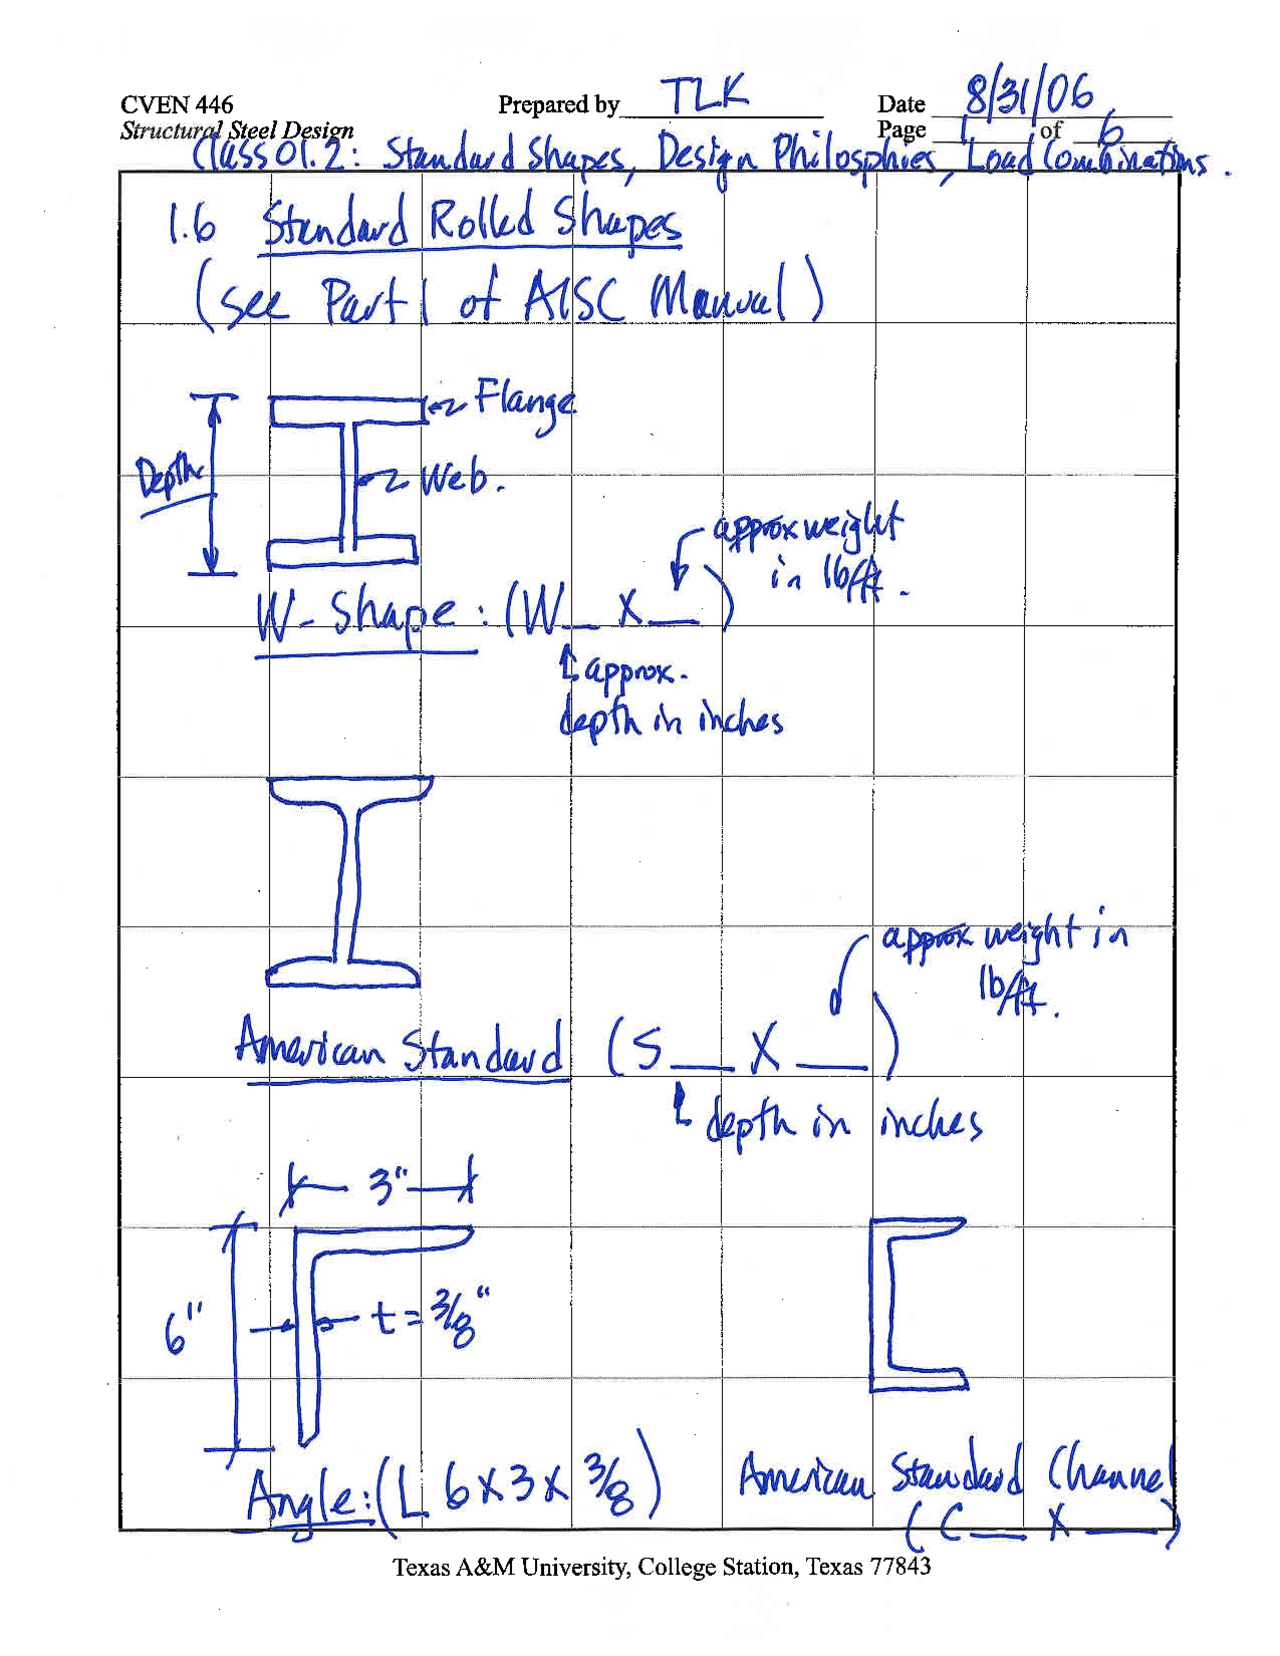 CVEN 446 Prepared by TLK Date 8/31/06
Structural Steel Design Page 1 of 6
Class 01.2: Standard Shapes, Design Philosphies, Load Combinations.
1.6 Standard Rolled Shapes
(see Part 1 of AISC Manual)
Flange
Depth
Web.
approx weight
in lb/ft.
W-Shape: (W__ X __)
approx.
depth in inches
approx weight in
lb/ft.
American Standard (S __ X __)
depth in inches
3"
6"
t = 3/8"
Angle: (L 6 x 3 x 3/8)
American Standard Channel
(C __ X __)
Texas A&M University, College Station, Texas 77843